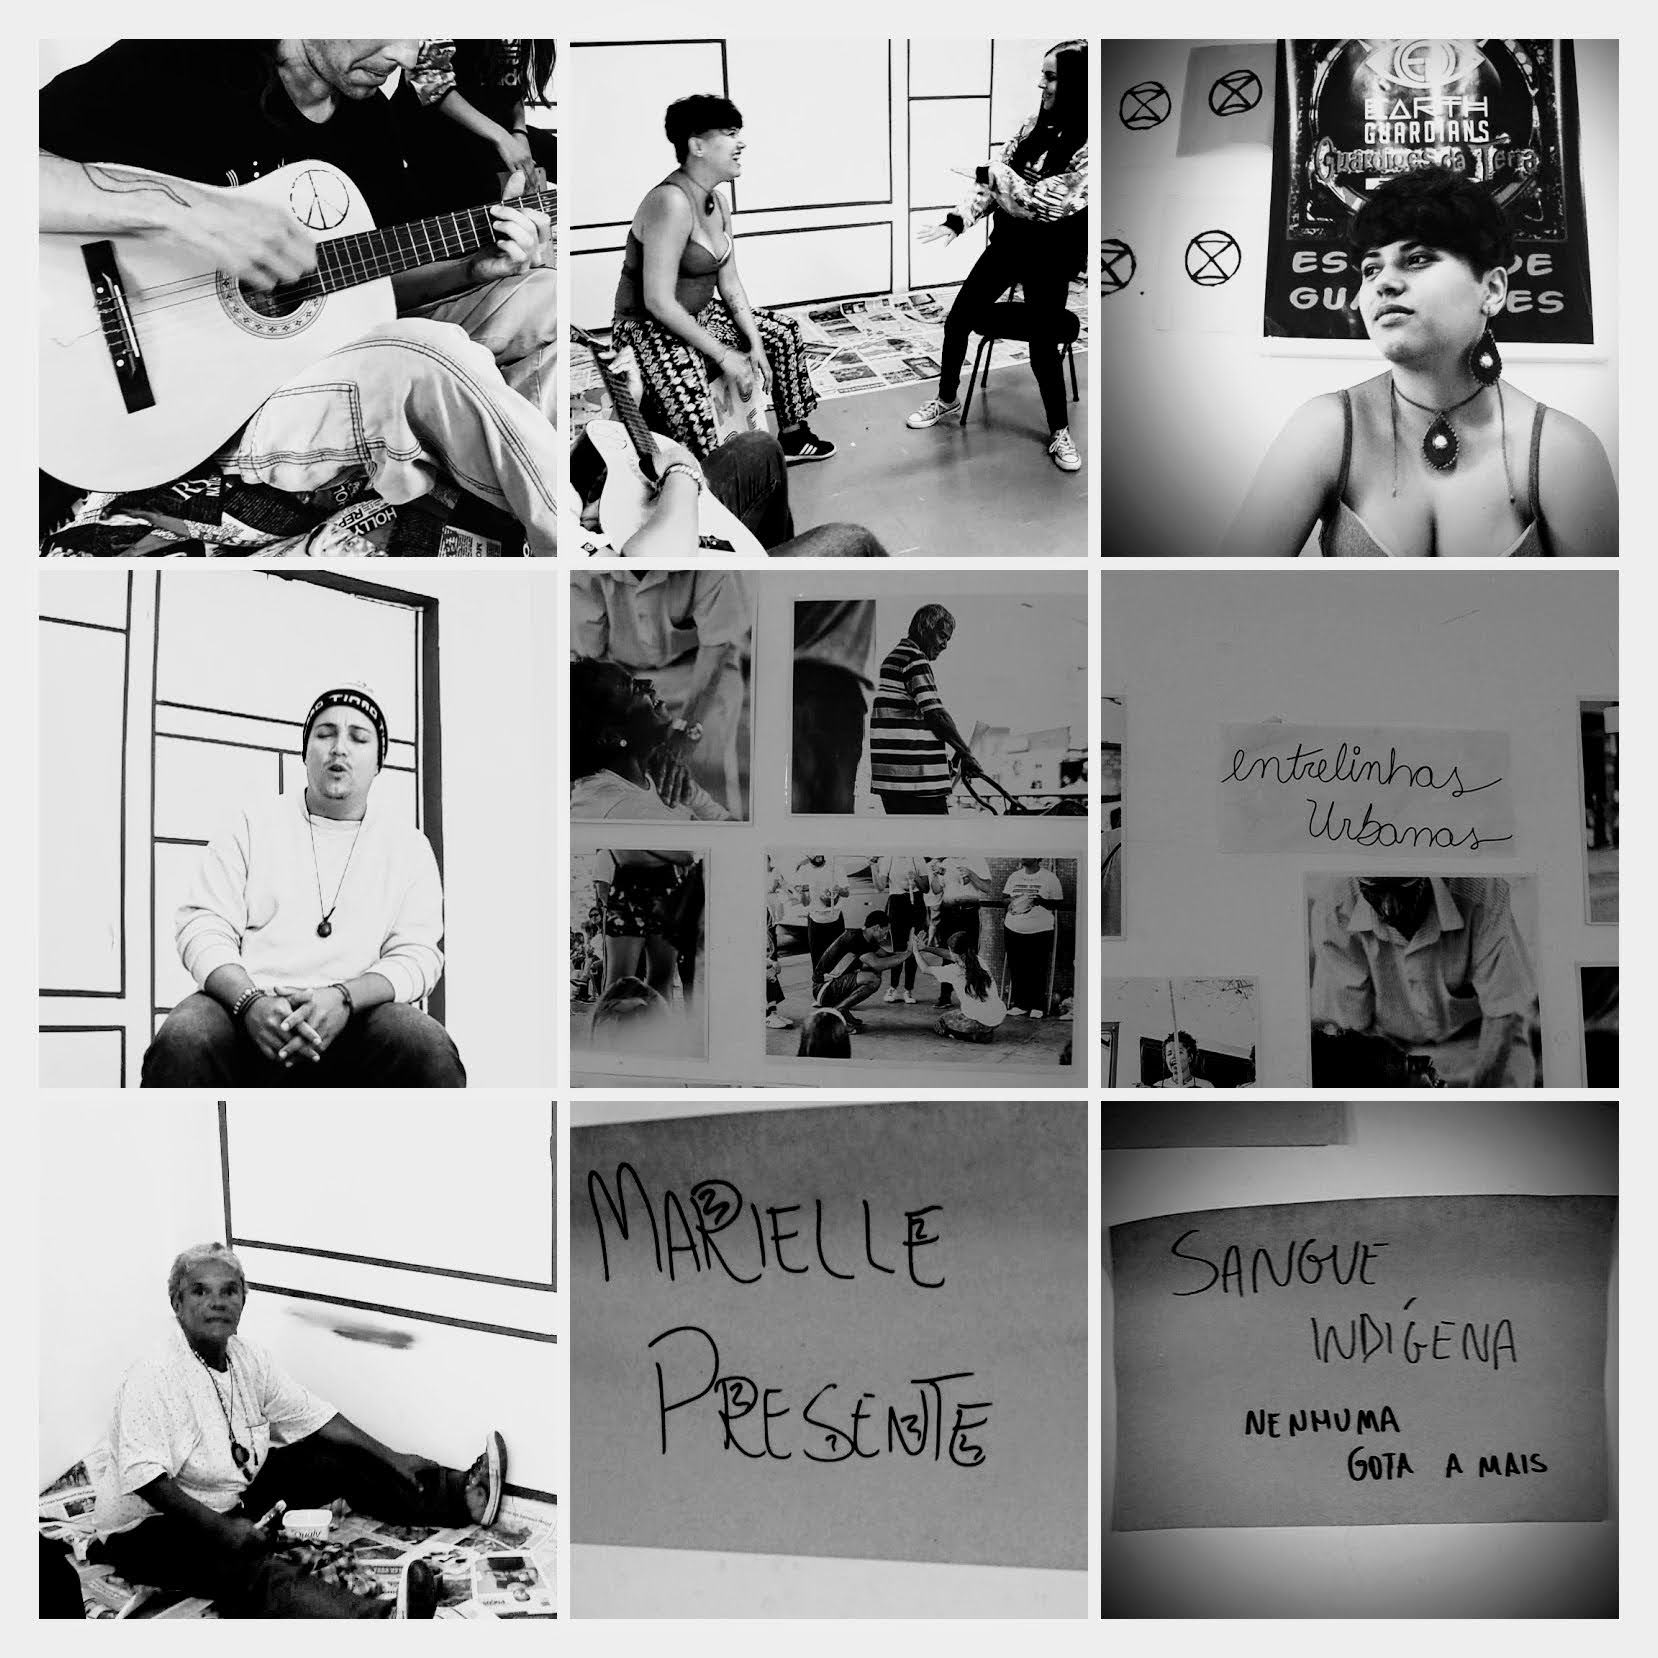 EARTH
GUARDIANS
Guardiões da Terra
TIMÃO
entrelinhas
Urbanas
Qualy
MARIELLE
PRESENTE
SANGUE
INDÍGENA
NENHUMA
GOTA A MAIS